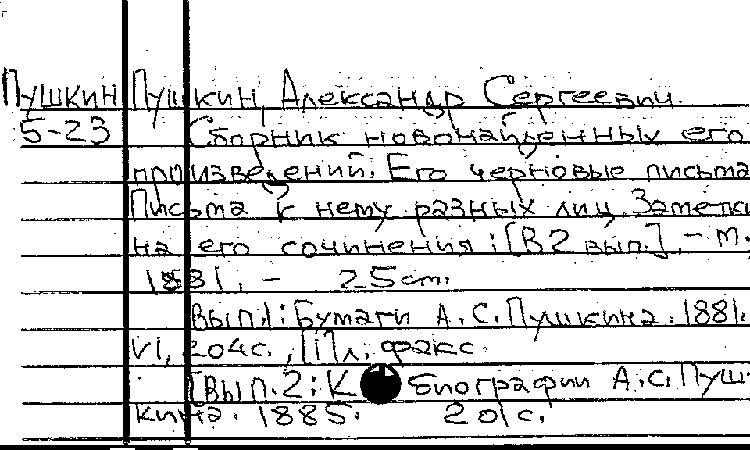 Пушкин Пушкин, Александр Сергеевич
5-23 Сборник новонайденных его
произведений. Его черновые письма
Письма к нему разных лиц. Заметки
на его сочинения: [В 2 вып.]. – М.,
1881. – 25 см.
Вып.1: Бумаги А.С.Пушкина. 1881.
VI, 204с., [1]л. факс.
[Вып.2: К биографии А.С.Пуш-
кина. 1885. 201с.